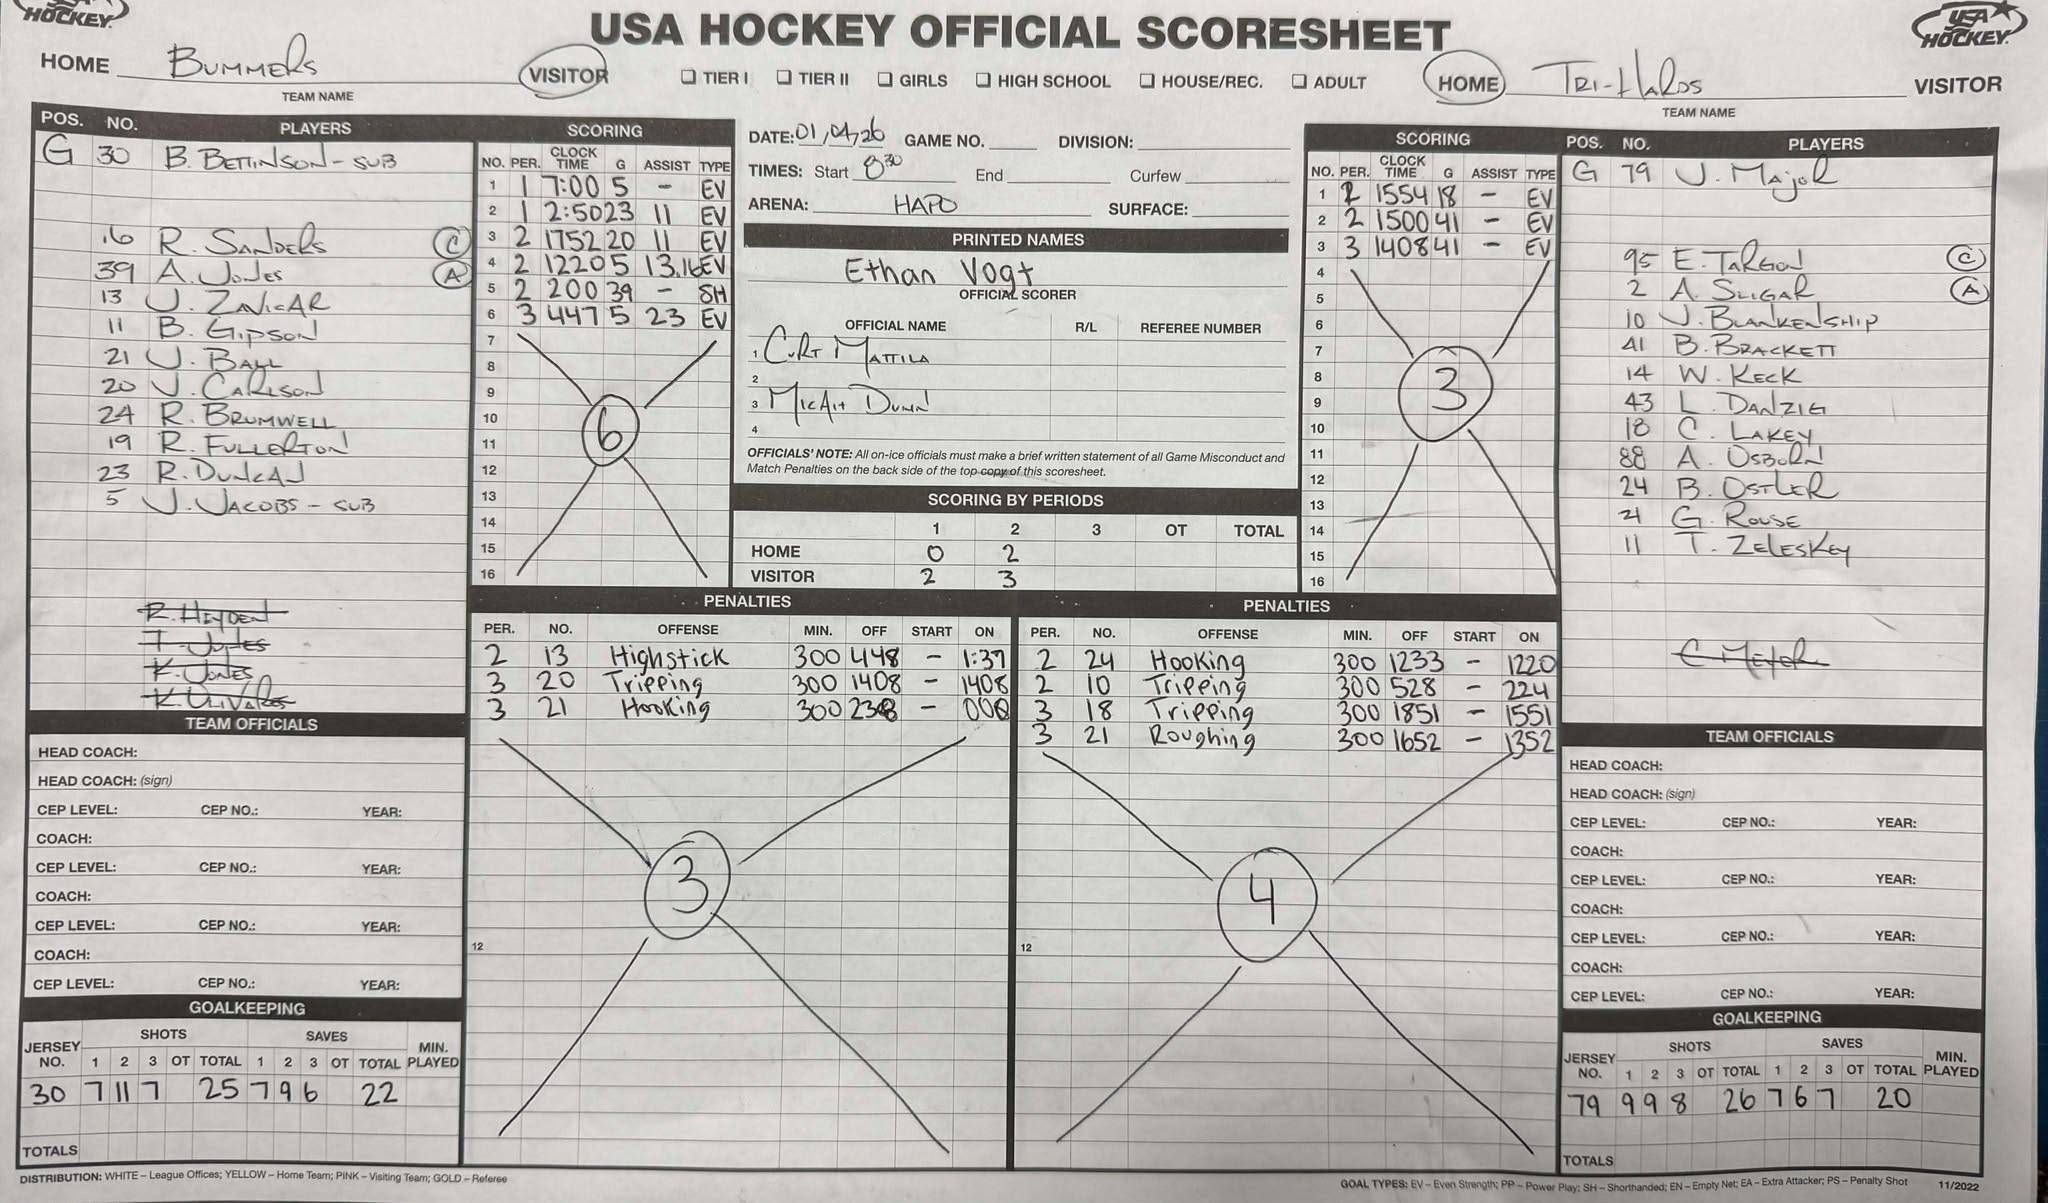 USA HOCKEY OFFICIAL SCORESHEET
HOCKEY
USA HOCKEY
HOME Bummers VISITOR
TEAM NAME
TIER I TIER II GIRLS HIGH SCHOOL HOUSE/REC. ADULT
HOME Tri-Hards VISITOR
TEAM NAME
POS. NO. PLAYERS
G 30 B. Bettinson - sub
16 R. Sanders C
39 A. Jones A
13 J. Zavicar
11 B. Gipson
21 J. Ball
20 J. Carlson
24 R. Brumwell
19 R. Fullerton
23 R. Duncan
5 J. Jacobs - sub
R. Heyden
T. Jones
K. Jones
K. Olivares
SCORING
NO. PER. CLOCK TIME G ASSIST TYPE
1 1 7:00 5 - EV
2 1 2:50 23 11 EV
3 2 1752 20 11 EV
4 2 1220 5 13.16 EV
5 2 200 39 - SH
6 3 447 5 23 EV
7
8
9
10
11
12
13
14
15
16
6
DATE: 01,04,26 GAME NO. DIVISION:
TIMES: Start 8:30 End Curfew
ARENA: HAPO SURFACE:
PRINTED NAMES
Ethan Vogt
OFFICIAL SCORER
OFFICIAL NAME R/L REFEREE NUMBER
1 Curt Mattila
2
3 Micah Dunn
4
OFFICIALS' NOTE: All on-ice officials must make a brief written statement of all Game Misconduct and
Match Penalties on the back side of the top copy of this scoresheet.
SCORING BY PERIODS
1 2 3 OT TOTAL
HOME 0 2
VISITOR 2 3
SCORING
NO. PER. CLOCK TIME G ASSIST TYPE
1 2 1554 18 - EV
2 2 1500 41 - EV
3 3 1408 41 - EV
4
5
6
7
8
9
10
11
12
13
14
15
16
3
POS. NO. PLAYERS
G 79 J. Major
95 E. Targon C
2 A. Sligar A
10 J. Blankenship
41 B. Brackett
14 W. Keck
43 L. Danzig
18 C. Lakey
88 A. Osborn
24 B. Ostler
21 G. Rouse
11 T. Zeleskey
PENALTIES
PER. NO. OFFENSE MIN. OFF START ON
2 13 Highstick 300 448 - 1:37
3 20 Tripping 300 1408 - 1408
3 21 Hooking 300 238 - 000
3
12
PENALTIES
PER. NO. OFFENSE MIN. OFF START ON
2 24 Hooking 300 1233 - 1220
2 10 Tripping 300 528 - 224
3 18 Tripping 300 1851 - 1551
3 21 Roughing 300 1652 - 1352
4
12
TEAM OFFICIALS
HEAD COACH:
HEAD COACH: (sign)
CEP LEVEL: CEP NO.: YEAR:
COACH:
CEP LEVEL: CEP NO.: YEAR:
COACH:
CEP LEVEL: CEP NO.: YEAR:
COACH:
CEP LEVEL: CEP NO.: YEAR:
TEAM OFFICIALS
HEAD COACH:
HEAD COACH: (sign)
CEP LEVEL: CEP NO.: YEAR:
COACH:
CEP LEVEL: CEP NO.: YEAR:
COACH:
CEP LEVEL: CEP NO.: YEAR:
COACH:
CEP LEVEL: CEP NO.: YEAR:
GOALKEEPING
SHOTS SAVES
JERSEY NO. 1 2 3 OT TOTAL 1 2 3 OT TOTAL MIN. PLAYED
30 7 11 7 25 7 9 6 22
TOTALS
GOALKEEPING
SHOTS SAVES
JERSEY NO. 1 2 3 OT TOTAL 1 2 3 OT TOTAL MIN. PLAYED
79 9 9 8 26 7 6 7 20
TOTALS
DISTRIBUTION: WHITE – League Offices; YELLOW – Home Team; PINK – Visiting Team; GOLD – Referee
GOAL TYPES: EV – Even Strength; PP – Power Play; SH – Shorthanded; EN – Empty Net; EA – Extra Attacker; PS – Penalty Shot 11/2022